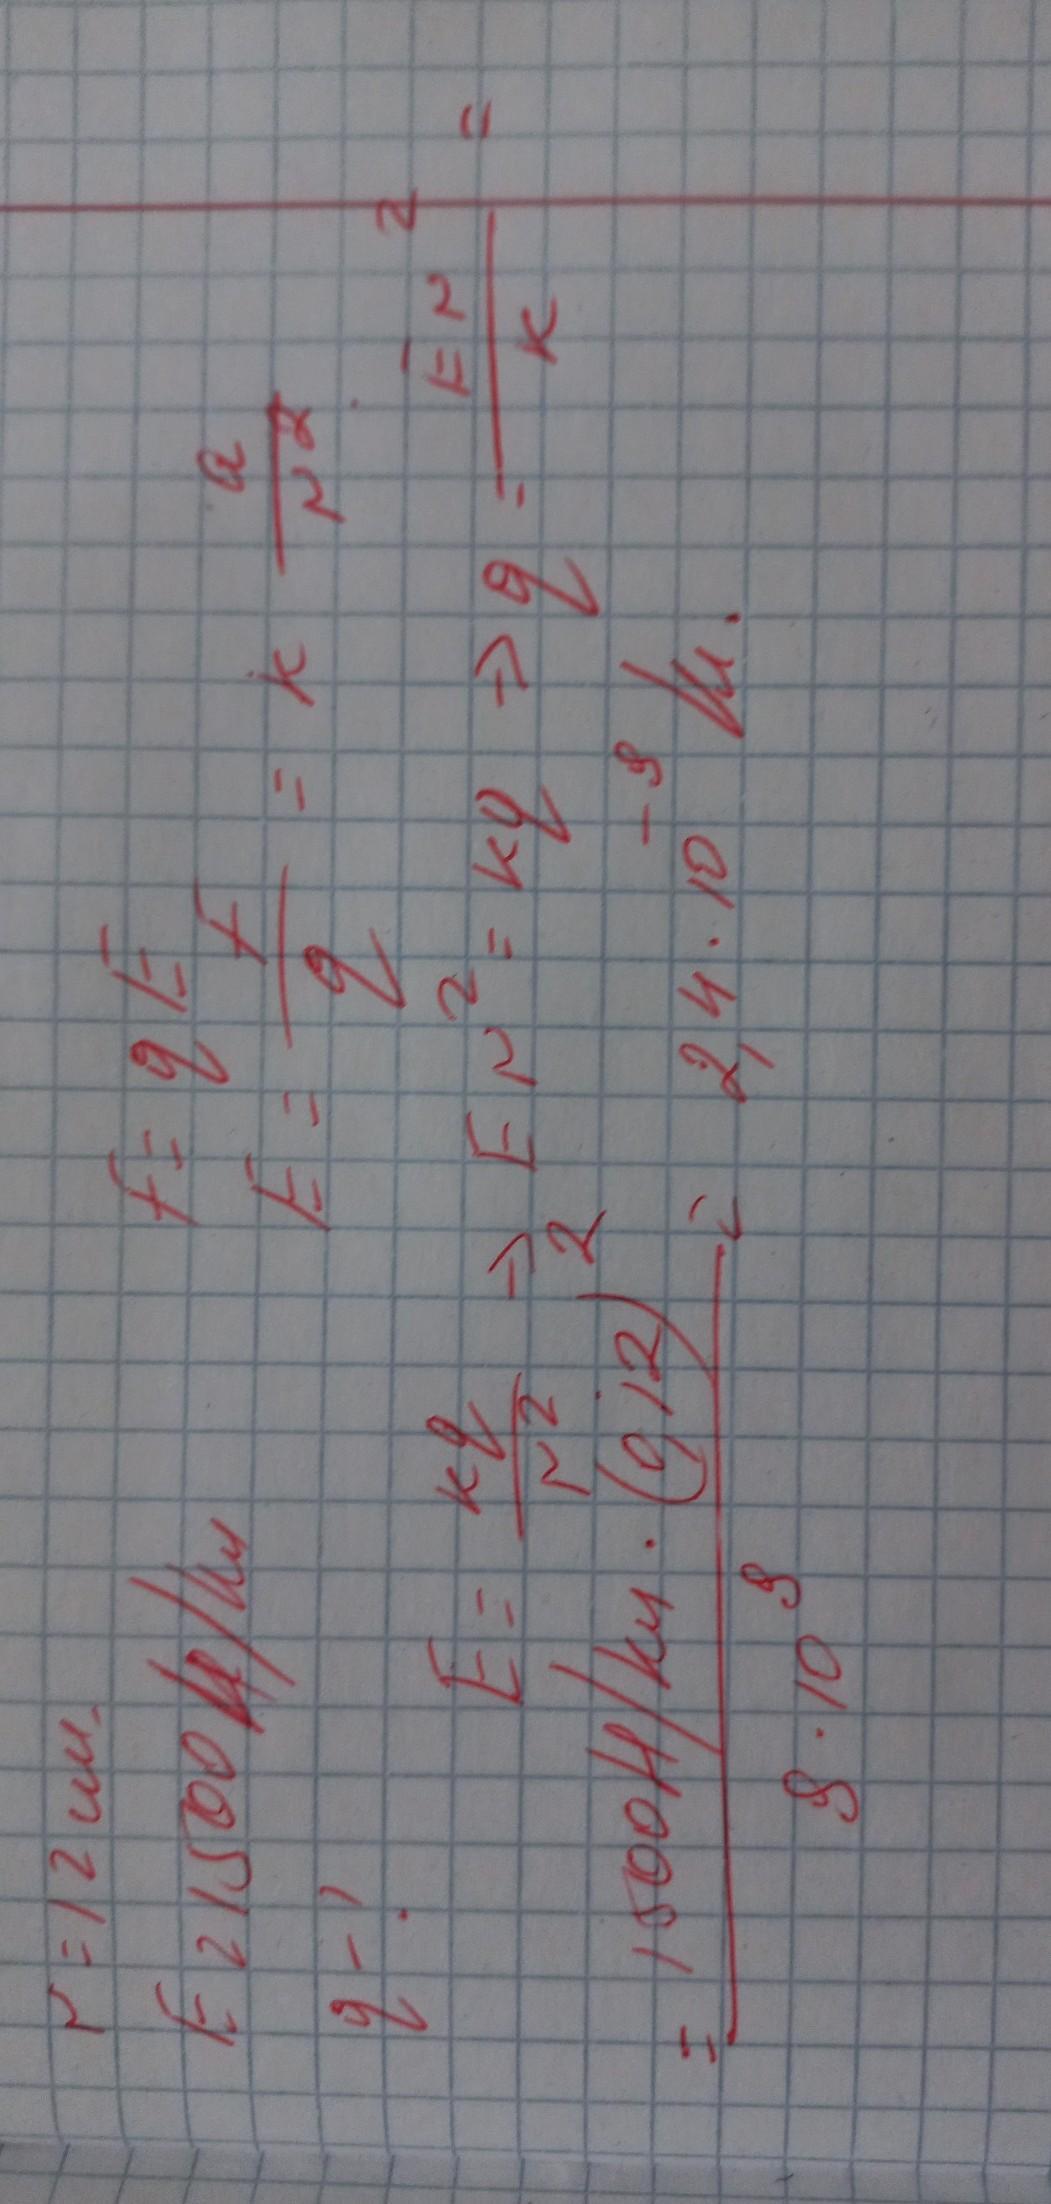 r = 12 см.
E = 1500 Н/Кл
q - ?
F = qE
E = F/q = k q/r²
E = kq/r² → Er² = kq → q = Er²/k =
= 1500 Н/Кл · (0,12)² / 9 · 10⁹ = 2,4 · 10⁻⁹ Кл.